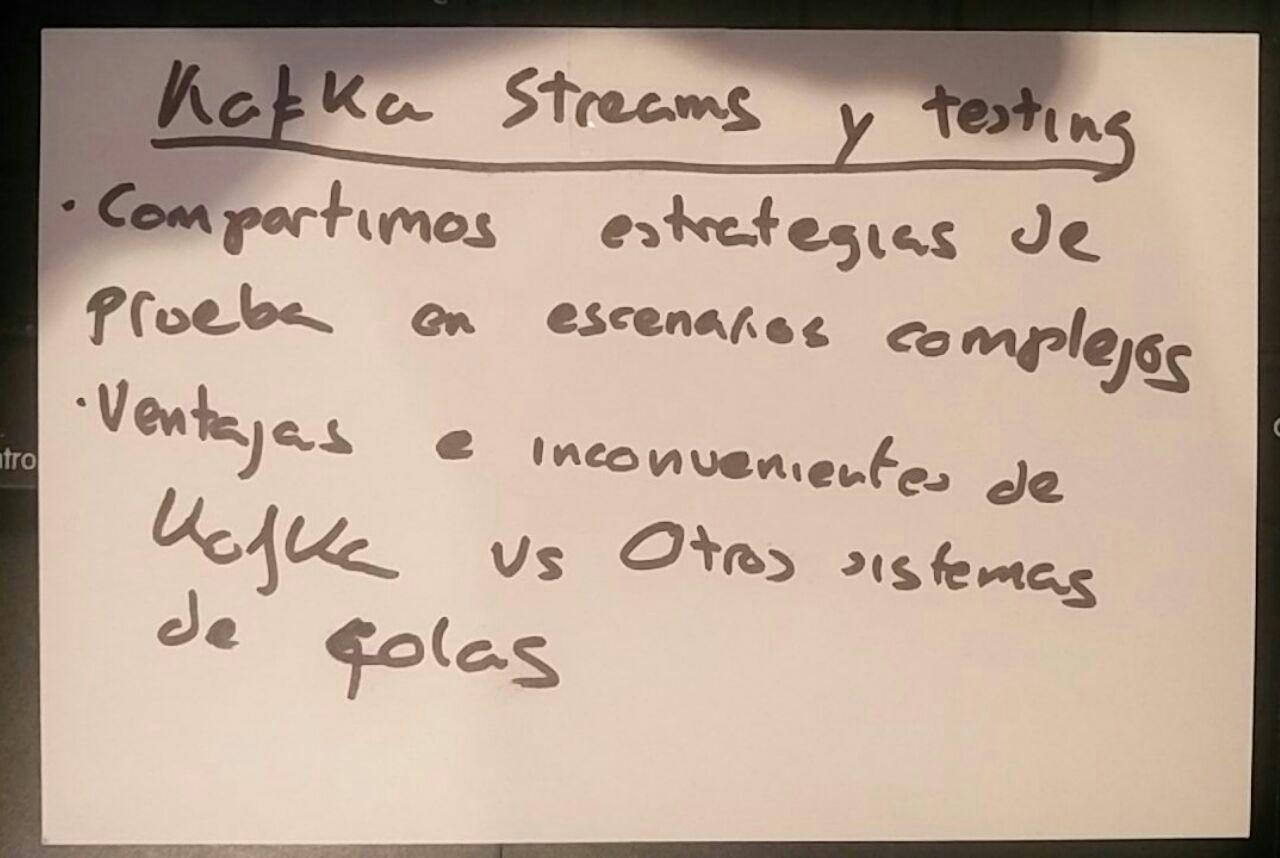 Kafka Streams y testing
· Compartimos estrategias de
prueba en escenarios complejos
· Ventajas e inconvenientes de
Kafka vs Otros sistemas
de colas
ntro